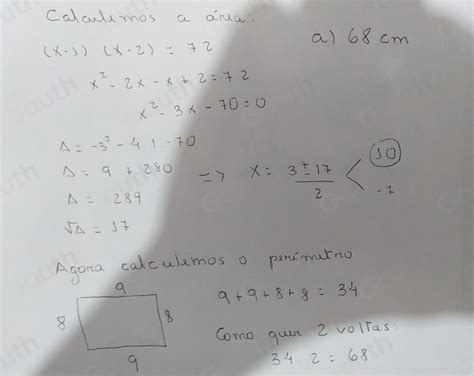 Calculemos a área:
(x-1) (x-2) = 72
a) 68 cm
x² - 2x - x + 2 = 72
x² - 3x - 70 = 0
Δ = -3² - 4 1 · -70
Δ = 9 + 280
=> x = 3 ± 17 / 2 < 10
-7
Δ = 289
√Δ = 17
Agora calculemos o perímetro
9
8 8
9
9 + 9 + 8 + 8 = 34
Como quer 2 voltas:
34 · 2 = 68